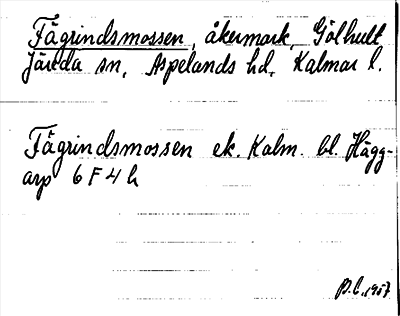 Fägrindsmossen, åkermark, Gölhult
Järeda sn, Aspelands hd, Kalmar l.
Fägrindsmossen ek. Kalm. bl. Hägg-
arp 6 F 4 h
1957